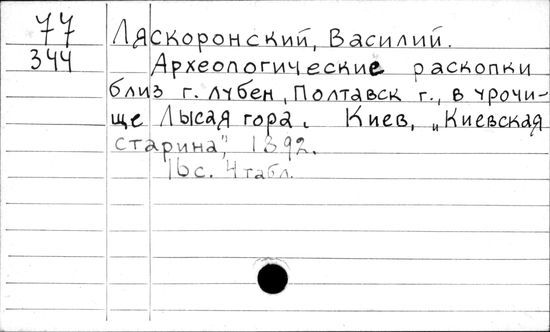 77 Ляскоронский, Василий.
344 Археологические раскопки
близ г. Лубен, Полтавск г., в урочи-
ще Лысая гора. Киев, „Киевская
старина", 1892.
16 с. 4 табл.